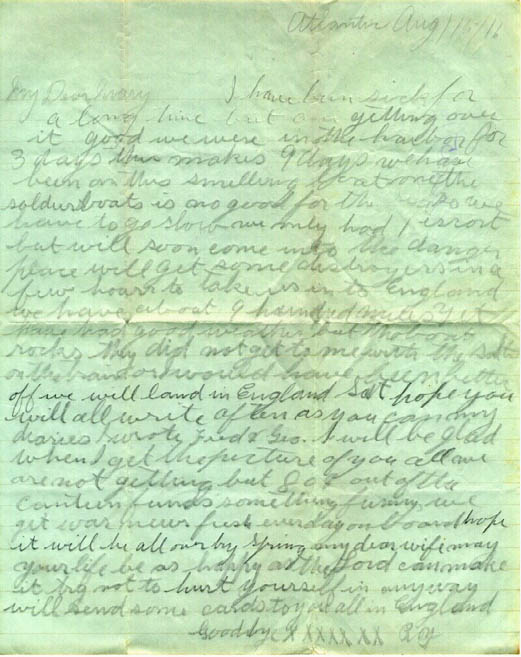 Atlantic Aug 15/16
My Dear Mary I have been sick for
a long time but am getting over
it good we were in the harbor for
3 days this makes 9 days we have
been on this smelling boat one the
soldiers boats is no good for the we
have to go slow we only had 1 issort
but will soon come into the danger
place will get some distroyers in a
few hours to take us in to England
we have about 9 hundred miles yet
have had good weather but the boat
rocks they did not get to me with the
on the hand or I would have been better
off we will land in England Sat hope you
will all write often as you can my
diaries I wrote Fred & Geo. I will be glad
when I get the picture of you all we
are not getting but out of the
canteen funds something funny we
get war news fresh everday on board hope
it will be all over by spring my dear wife may
your life be as happy as the Lord can make
it try not to hurt yourself in anyway
will send some cards to you all in England
Goodbye X X X X X X X Roy